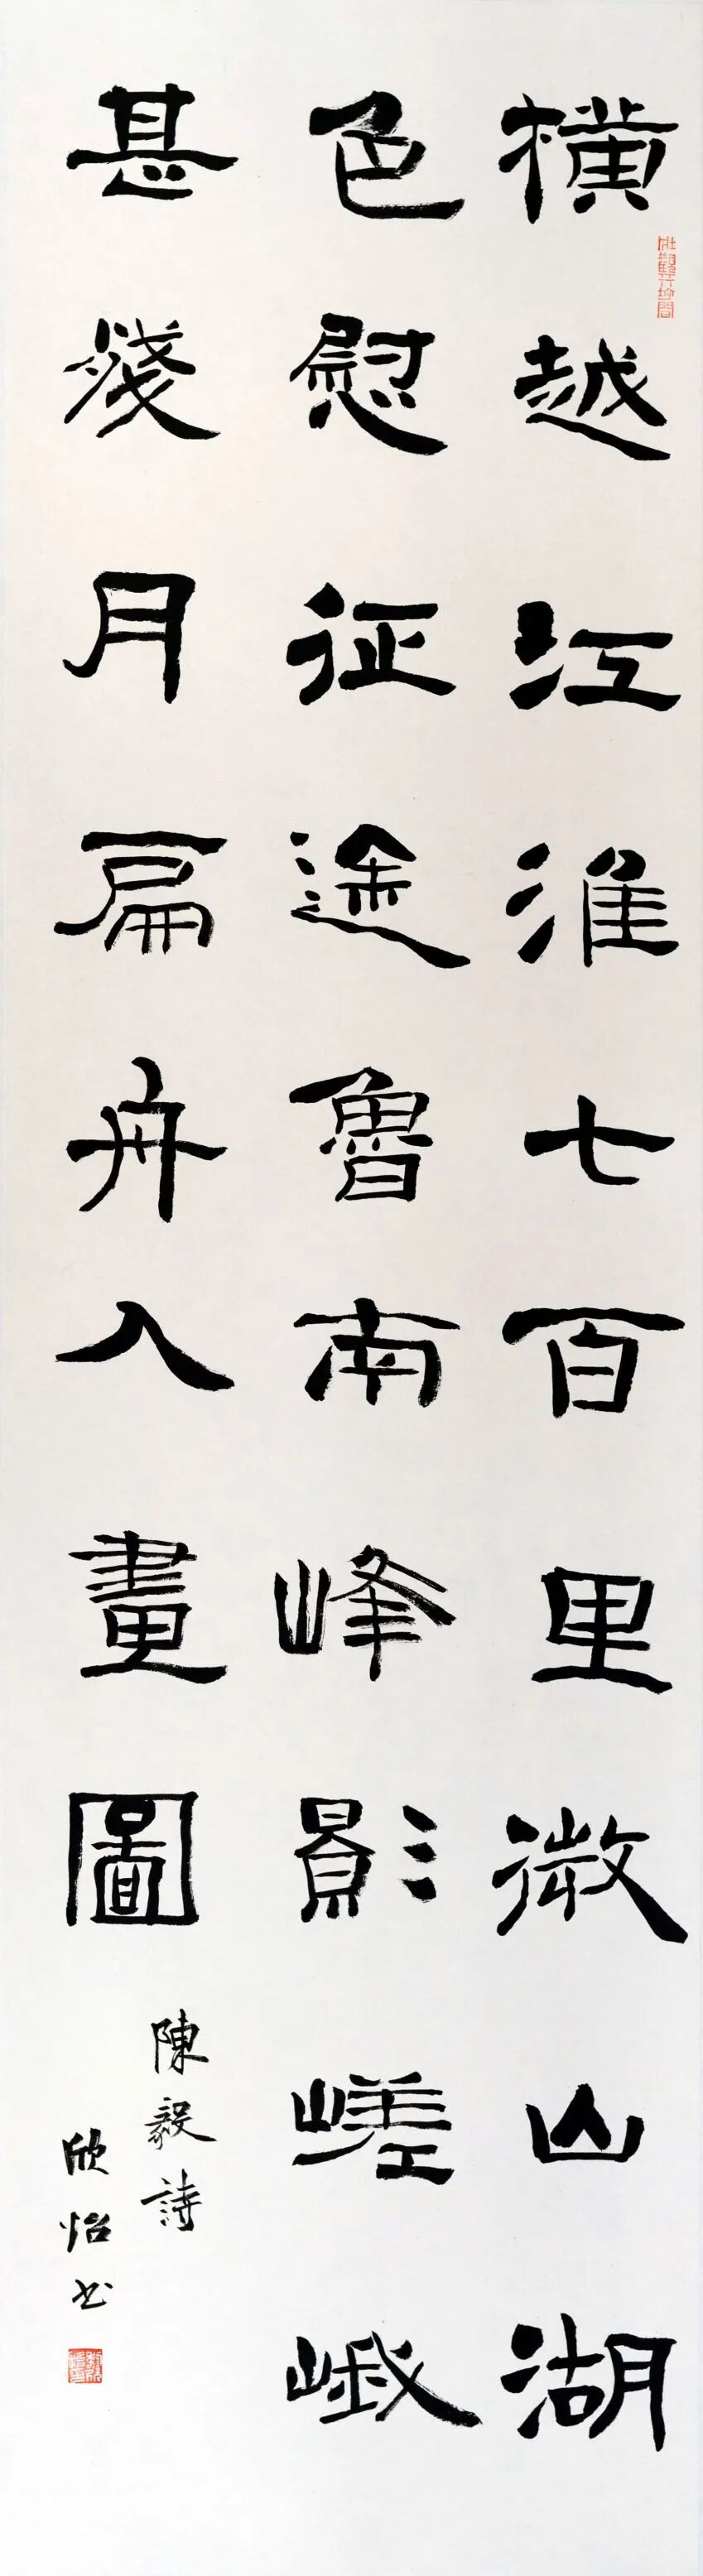 橫越江淮七百里微山湖
色慰征途魯南峰影嵯峨
甚殘月扁舟入畫圖
陳毅詩
欣怡书